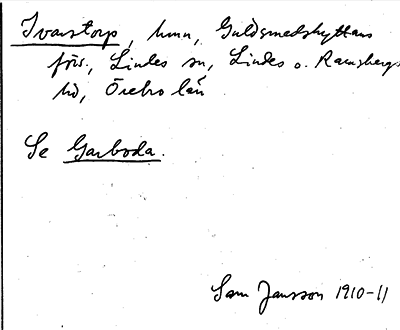 Ivarstorp, hmn, Guldsmedshyttans
förs., Lindes sn, Lindes o. Ramsbergs
hd, Örebro län
Se Garboda.
Sam Jansson 1910-11